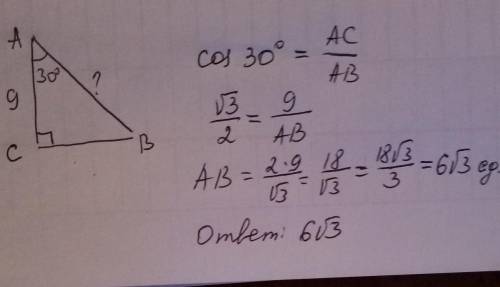 A
30°
?
9
C
B
cos 30° = AC/AB
√3/2 = 9/AB
AB = 2·9/√3 = 18/√3 = 18√3/3 = 6√3 ед.
Ответ: 6√3